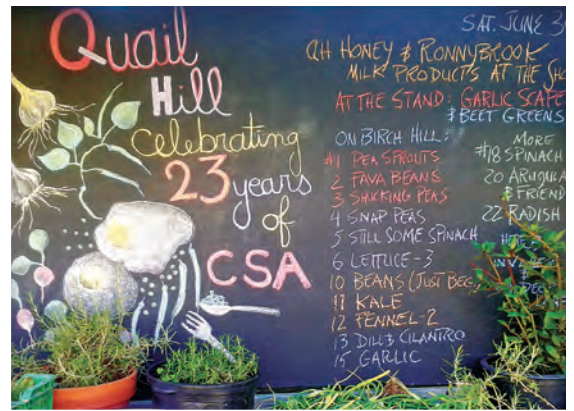 Quail
Hill
Celebrating
23 years
of
CSA
SAT. JUNE 3
QH HONEY & RONNYBROOK
MILK PRODUCTS AT THE
AT THE STAND: GARLIC SCAPE
& BEET GREENS
ON BIRCH HILL:
#1 PEA SPROUTS
2 FAVA BEANS
3 SHUCKING PEAS
4 SNAP PEAS
5 STILL SOME SPINACH
6 LETTUCE-3
10 BEANS (JUST
11 KALE
12 FENNEL-2
13 DILL & CILANTRO
15 GARLIC
MORE
#18 SPINACH
20 ARUGULA
& FRIEND
22 RADISH